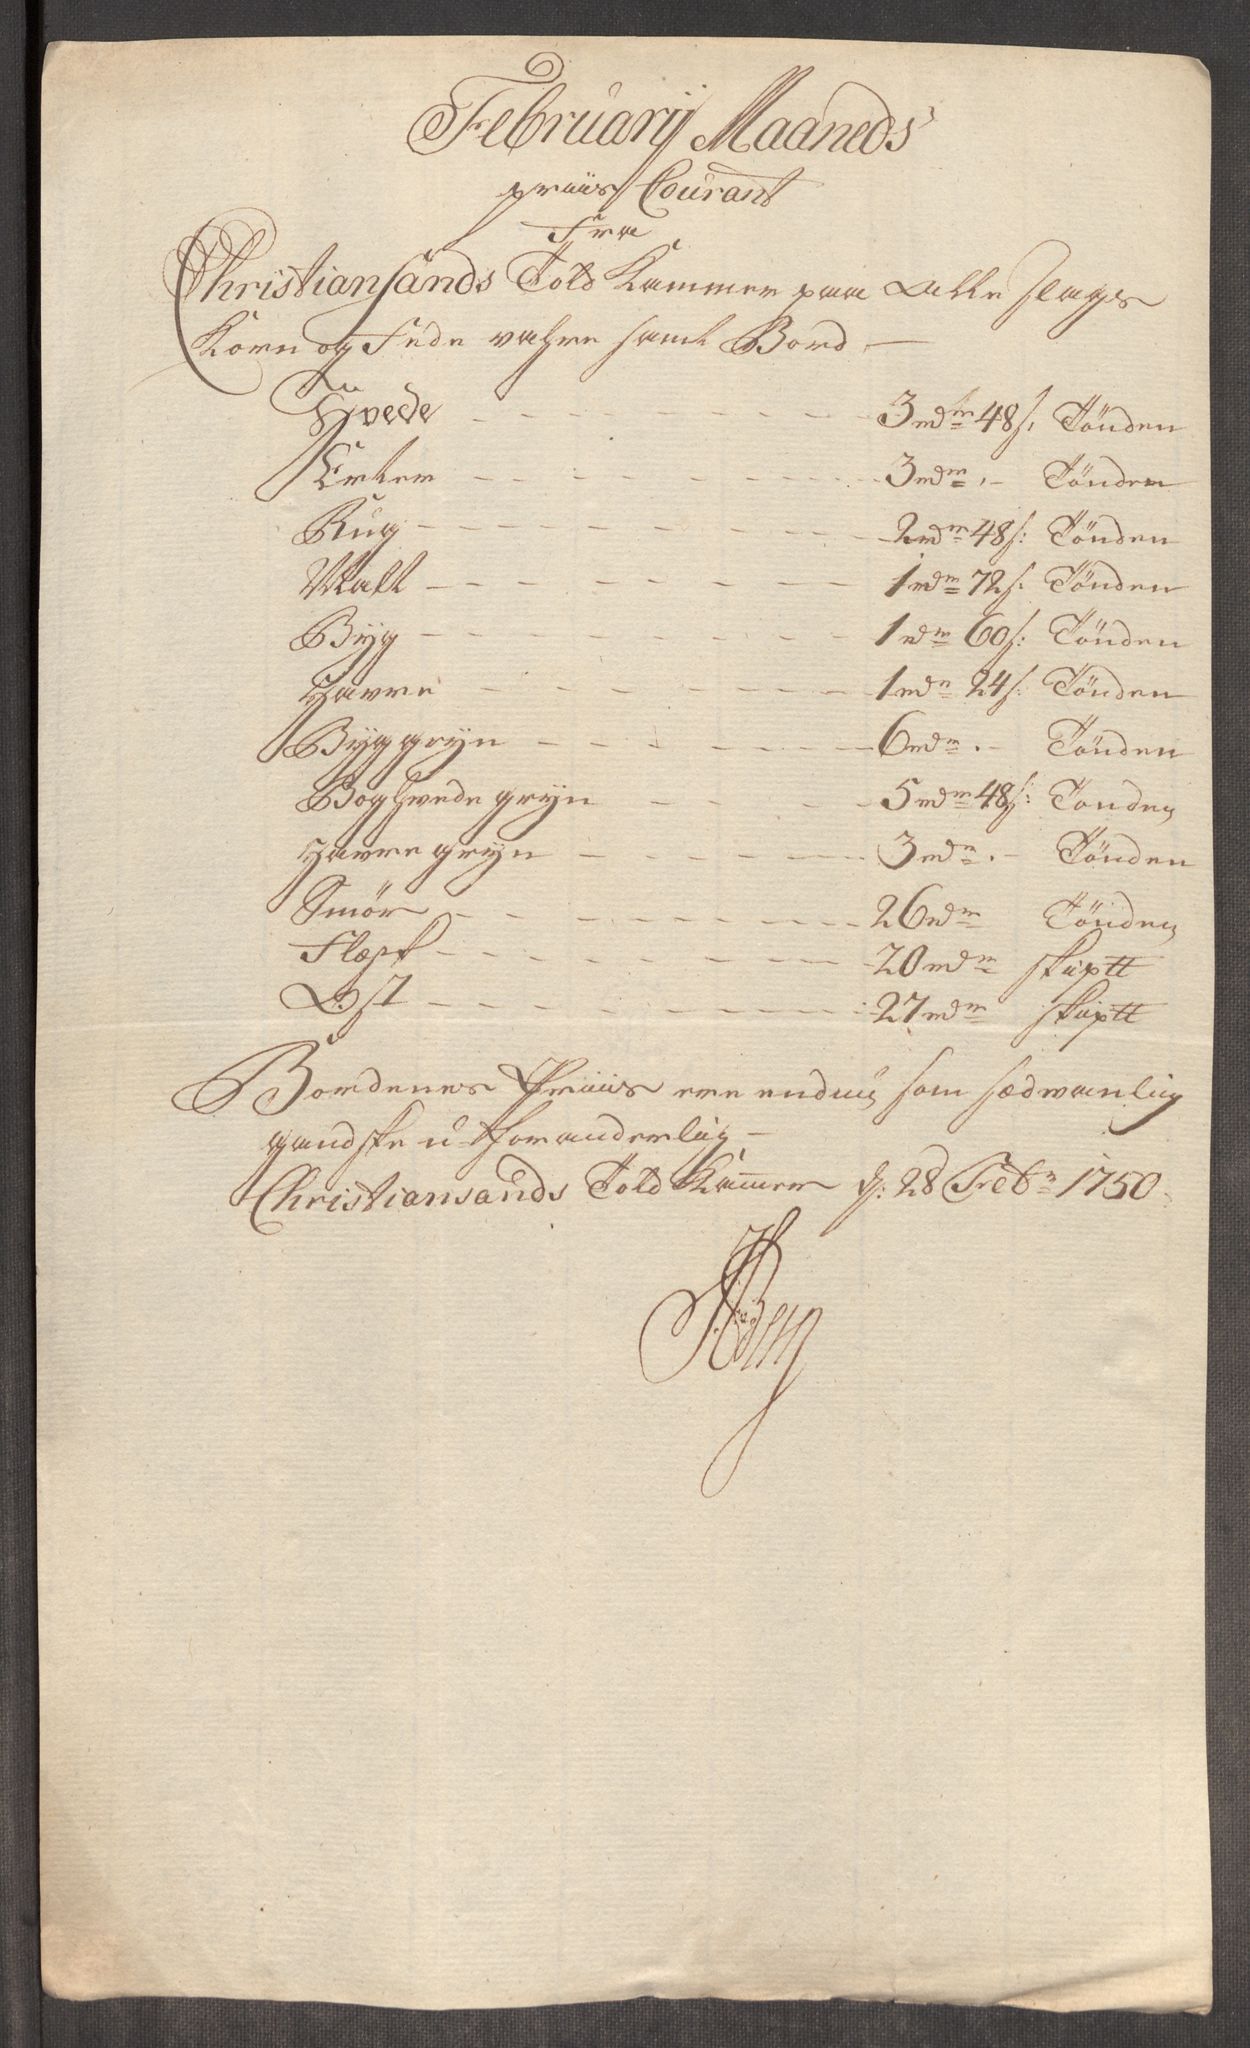 Februarij Maaneds
priis Courant
Fra
Christiansands Told Kammer paa Alle slags
Korn og Fede vahre samt Bord
Hvede 3 rdr 48 s: Tönden
Erter 3 rdr - Tönden
Rug 2 rdr 48 s: Tönden
Malt 1 rdr 72 s: Tönden
Byg 1 rdr 60 s: Tönden
Havre 1 rdr 24 s: Tönden
Byggryn 6 rdr - Tönden
Boghvede gryn 5 rdr 48 s: Tonden
Havre gryn 3 rdr - Tönden
Smör 26 rdr Tönden
Flæsk 20 rdr skuptt
Ost 27 rdr skuptt
Bordenes Priis ere endnu som sædvanlig
gandske u-foranderlig
Christiansands Told Kammer d: 28 Febr 1750